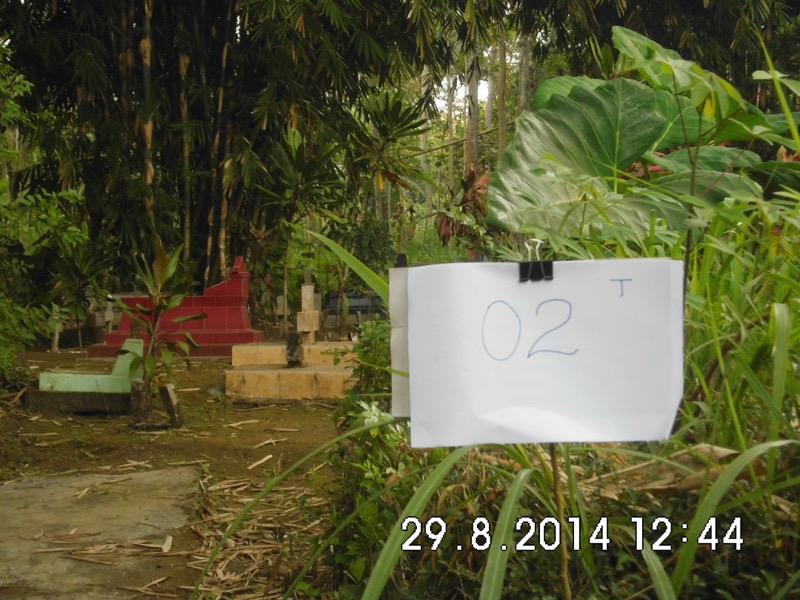 T
02
29.8.2014 12:44